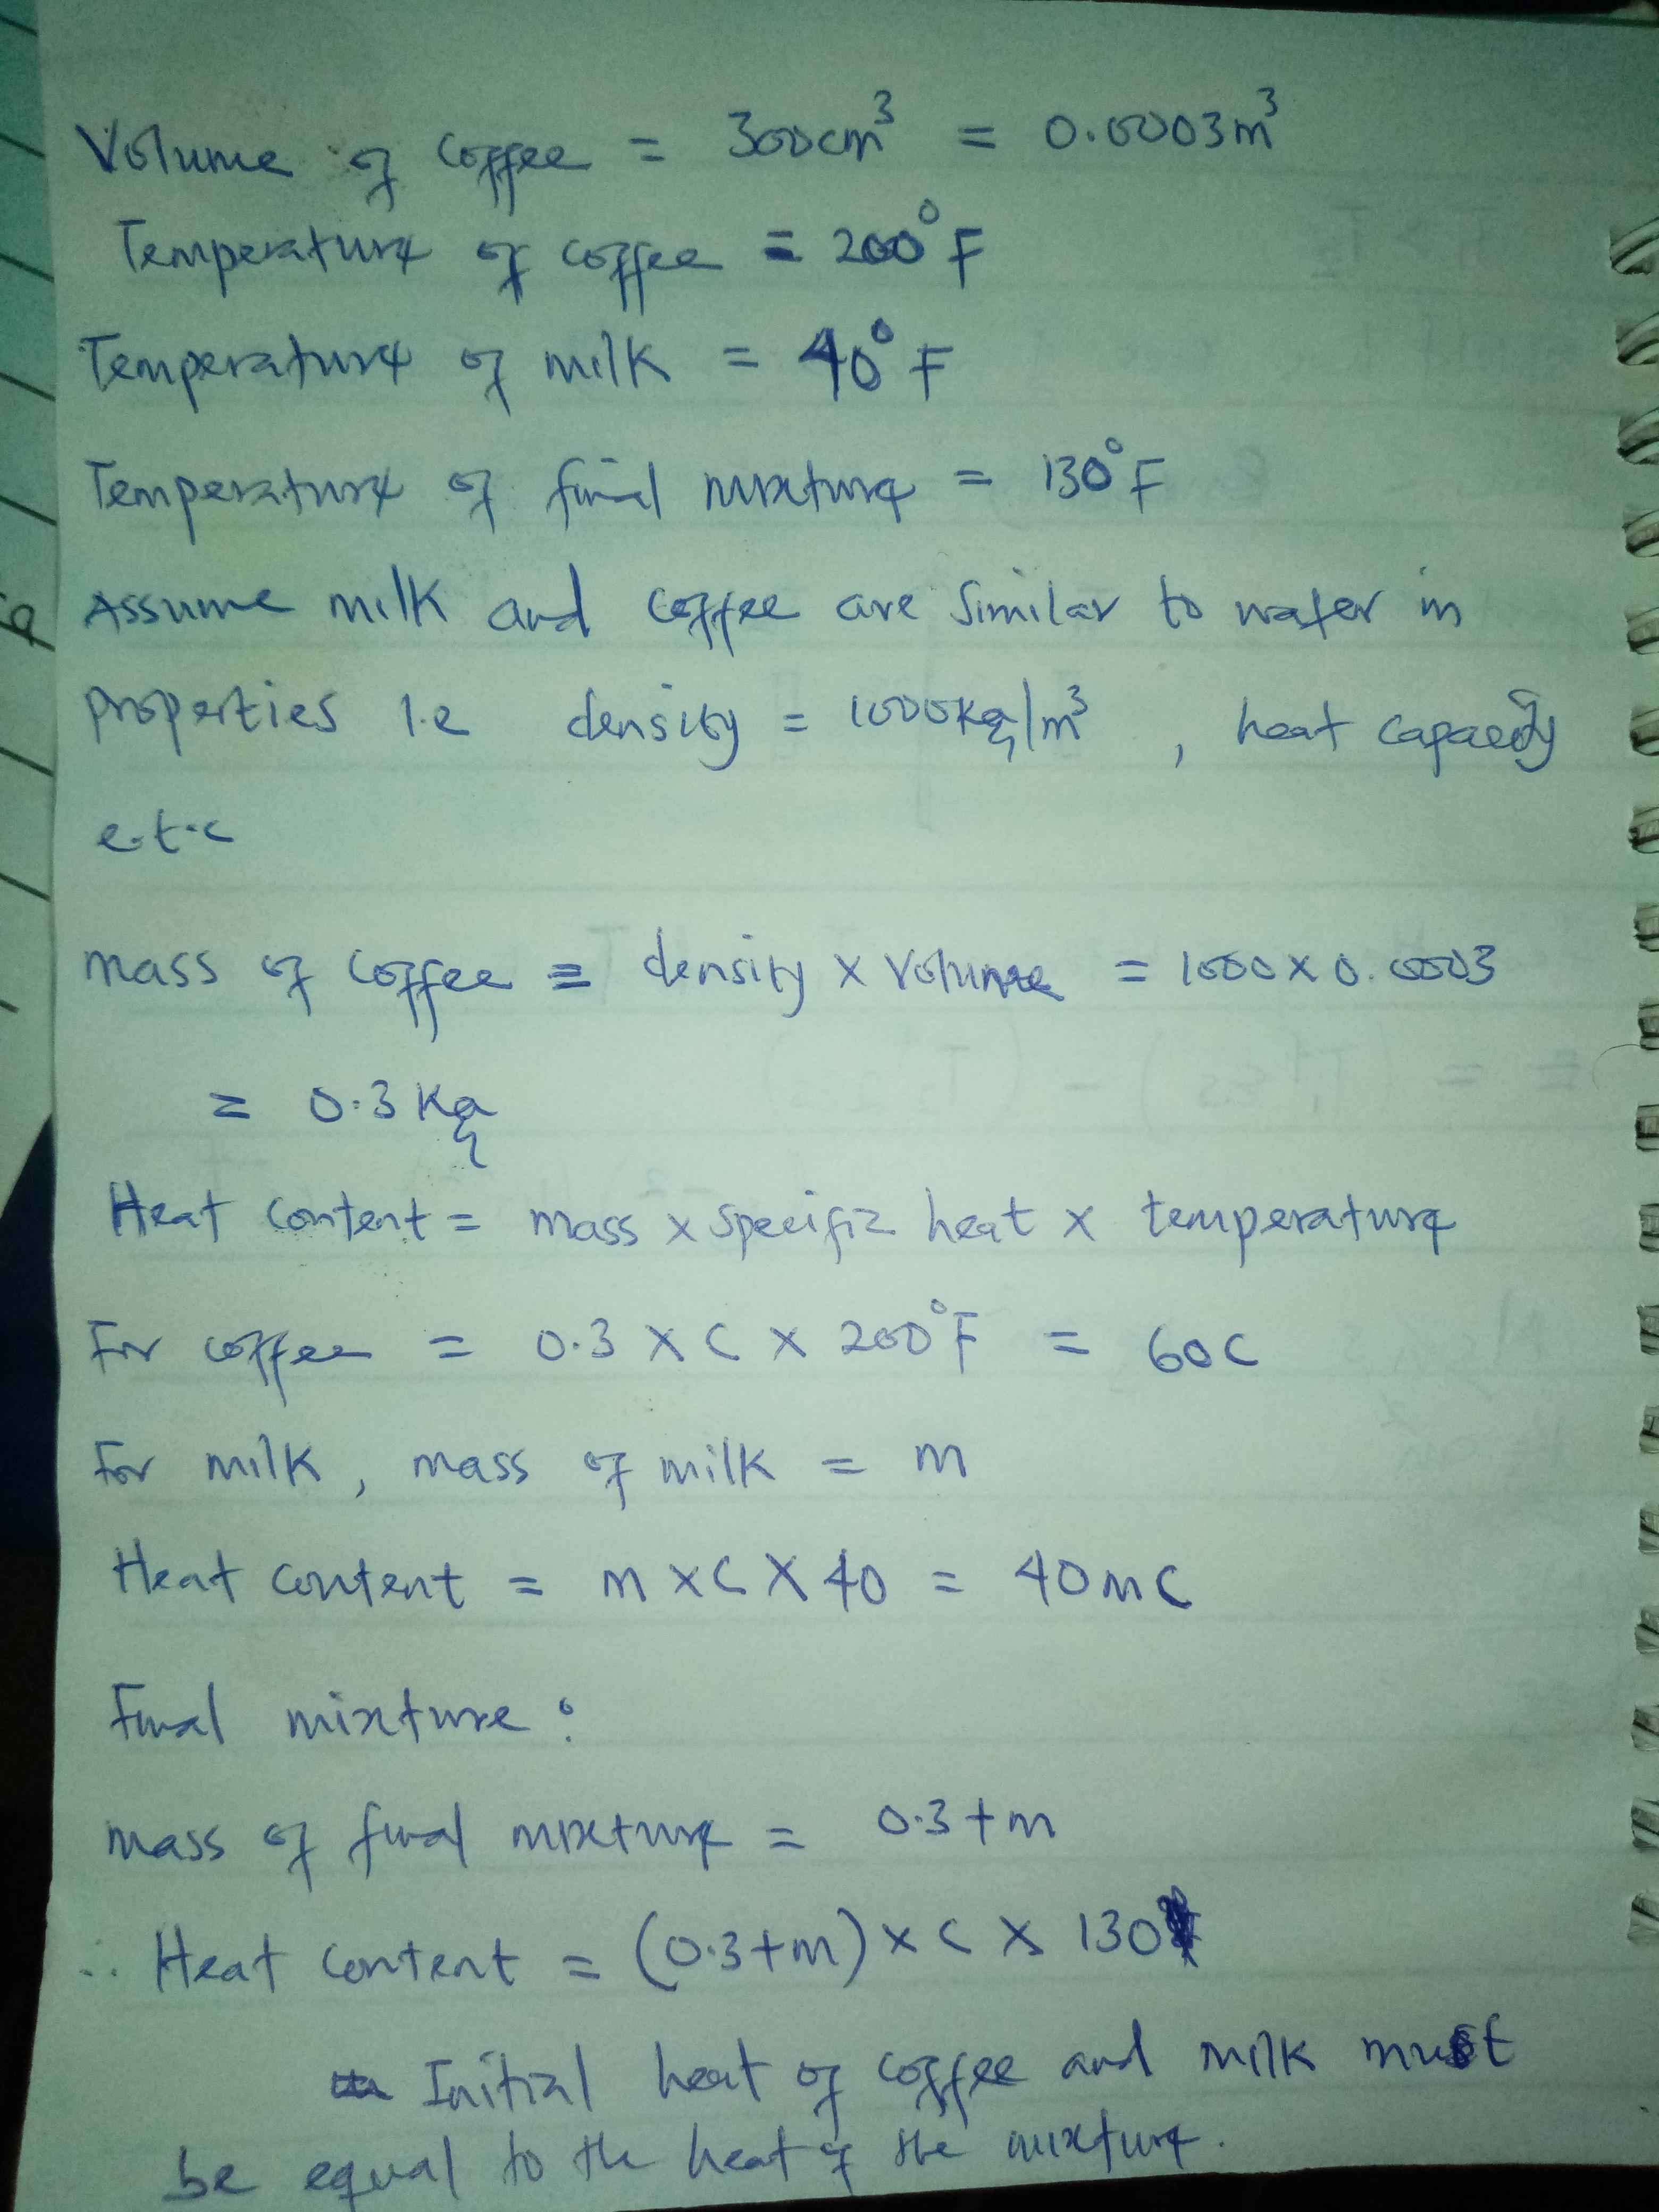 Volume of coffee = 300cm³ = 0.0003m³
Temperature of coffee = 200°F
Temperature of milk = 40°F
Temperature of final mixture = 130°F
Assume milk and coffee are similar to water in
properties i.e density = 1000kg/m³, heat capacity
e.t.c
mass of coffee = density x volume = 1000 x 0.0003
= 0.3 Kg
Heat content = mass x specific heat x temperature
For coffee = 0.3 x C x 200°F = 60C
For milk, mass of milk = m
Heat content = m x C x 40 = 40mC
Final mixture:
mass of final mixture = 0.3+m
∴ Heat content = (0.3+m) x C x 130
Initial heat of coffee and milk must
be equal to the heat of the mixture.